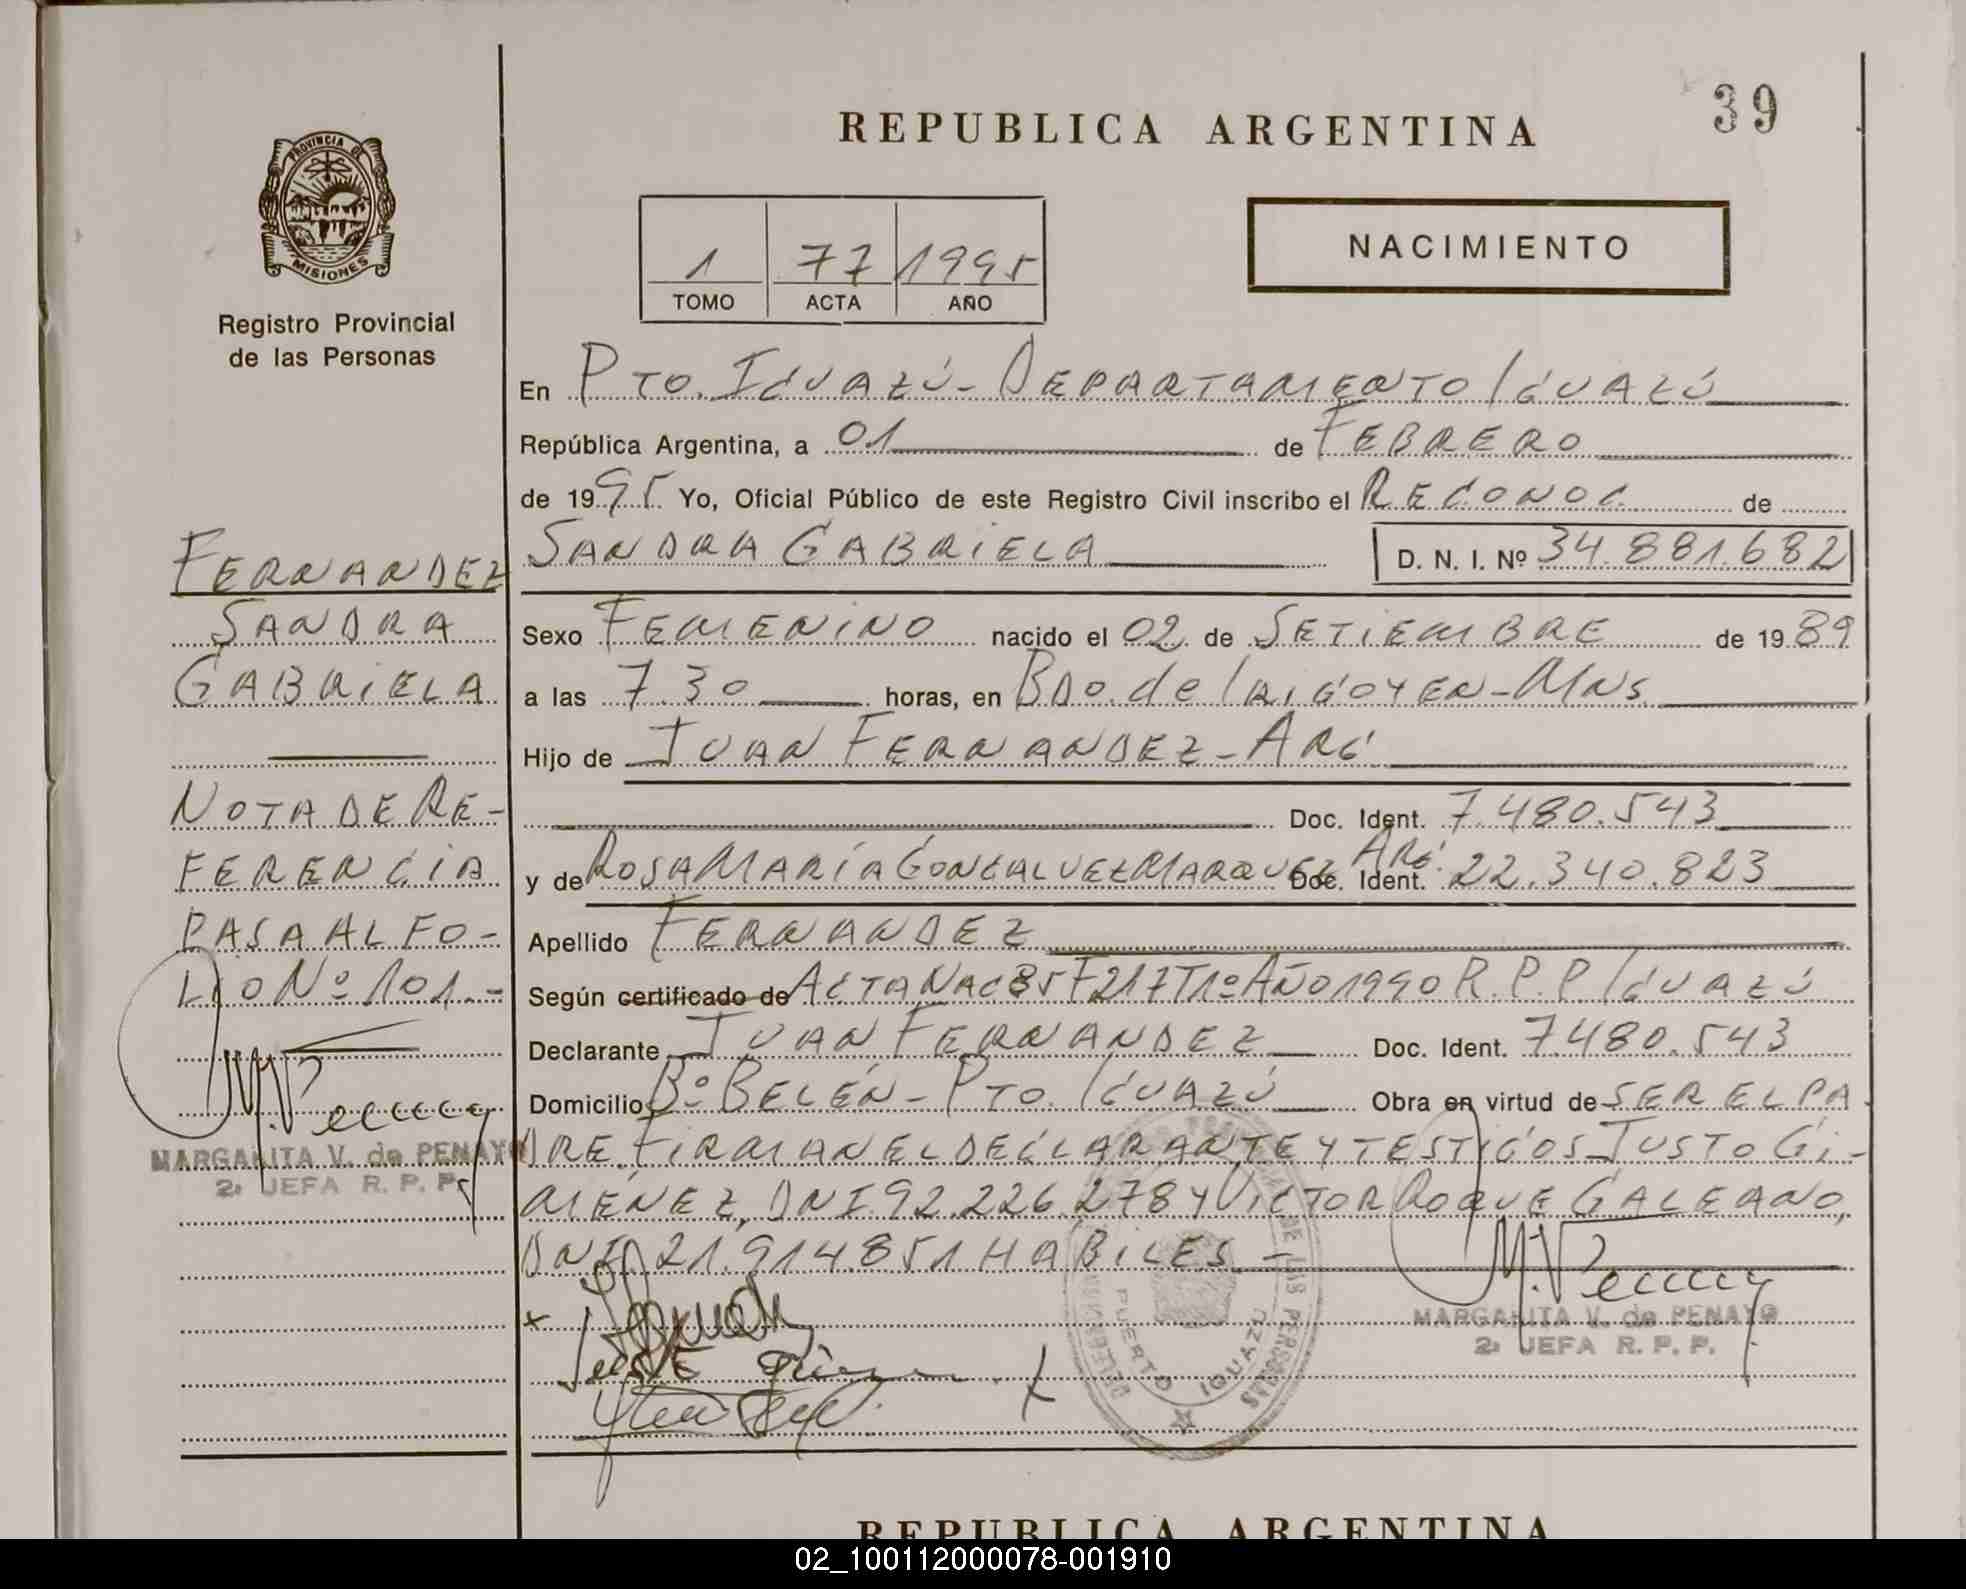 39
REPUBLICA ARGENTINA
PROVINCIA DE
MISIONES
Registro Provincial
de las Personas
NACIMIENTO
1 77 1995
TOMO ACTA AÑO
En PTO. IGUAZÚ - DEPARTAMENTO IGUAZÚ
República Argentina, a 01 de FEBRERO
de 1995 Yo, Oficial Público de este Registro Civil inscribo el RECONOC. de
SANDRA GABRIELA D. N. I. Nº 34.881.682
Sexo FEMENINO nacido el 02 de SETIEMBRE de 1989
a las 7.30 horas, en BDO. de IRIGOYEN - MNS.
Hijo de JUAN FERNANDEZ - ARG.
Doc. Ident. 7.480.543
y de ROSA MARÍA GONZALVEZ MARQUEZ ARG. Doc. Ident. 22.340.823
Apellido FERNANDEZ
Según certificado de ACTA NAC 85 F217 T1º AÑO 1990 R.P.P. IGUAZÚ
Declarante JUAN FERNANDEZ Doc. Ident. 7.480.543
Domicilio Bº BELÉN - PTO. IGUAZÚ Obra en virtud de SER EL PA
DRE. FIRMAN EL DECLARANTE Y TESTIGOS JUSTO GI-
MÉNEZ, DNI 92.226.278 Y VICTOR ROQUE GALEANO,
DNI 21.914.851 HÁBILES -
FERNANDEZ
SANDRA
GABRIELA
NOTA DE RE-
FERENCIA
PASA AL FO-
LIO Nº 101.-
MARGARITA V. de PENAYO
2ª JEFA R. P. P.
MARGARITA V. de PENAYO
2ª JEFA R. P. P.
DE LAS PERSONAS
PUERTO IGUAZU
REPUBLICA ARGENTINA
02_100112000078-001910